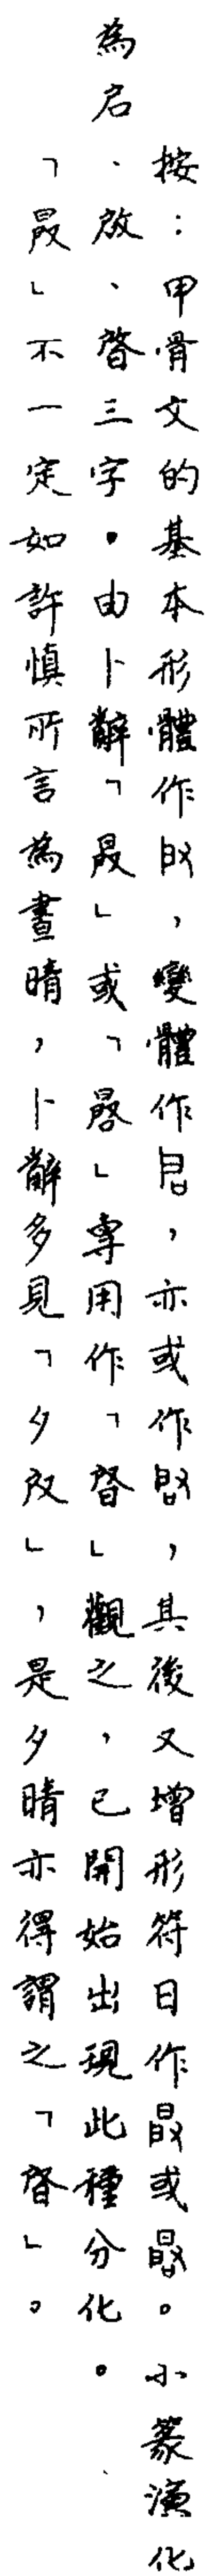 按：甲骨文的基本形體作𢻻，變體作启，亦或作啟，其後又增形符日作晸或暋。小篆演化
為启、啟、晵三字。由卜辭「」或「」專用作「晵」觀之，已開始出現此種分化。
「」不一定如許慎所言為晝晴，卜辭多見「夕」，是夕晴亦得謂之「晵」。